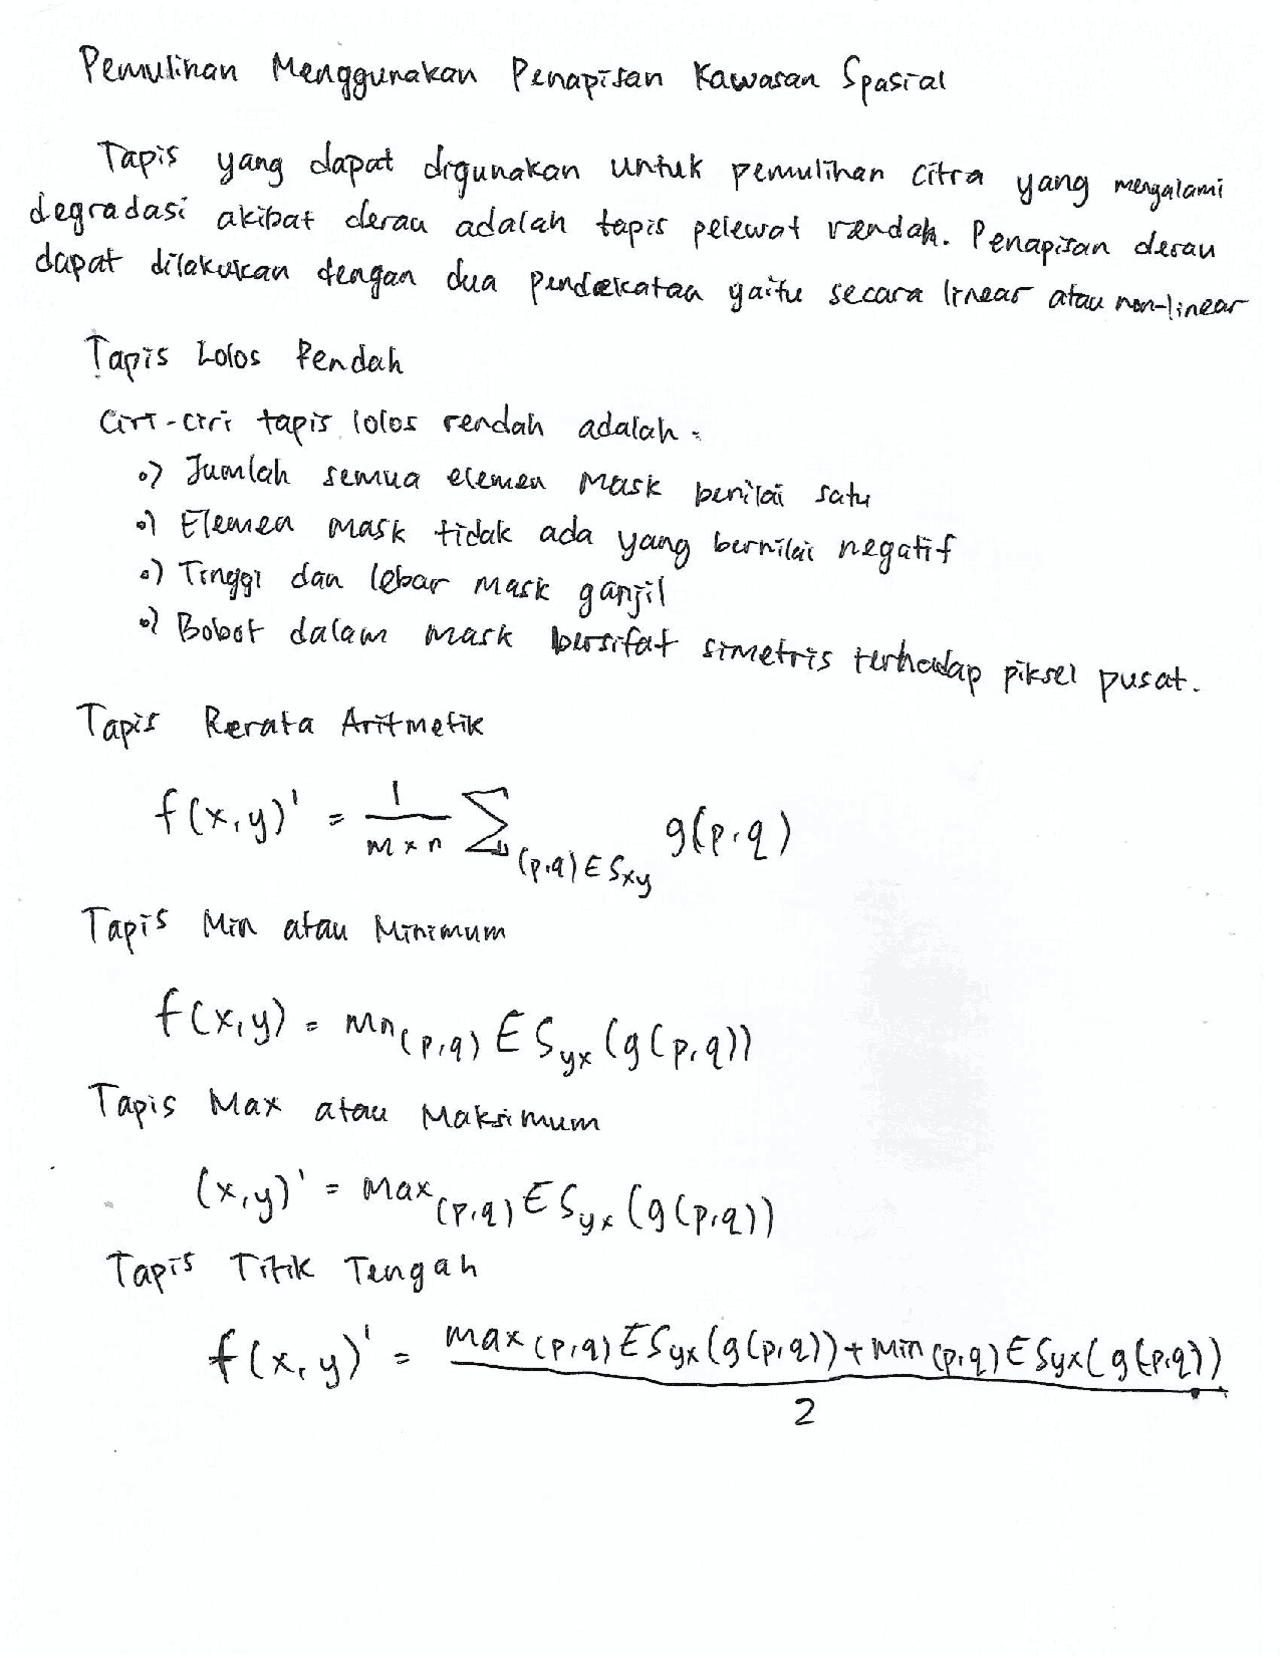 Pemulihan Menggunakan Penapisan Kawasan Spasial
Tapis yang dapat digunakan untuk pemulihan citra yang mengalami
degradasi akibat derau adalah tapis pelewat rendah. Penapisan derau
dapat dilakukan dengan dua pendekatan yaitu secara linear atau non-linear
Tapis Lolos Rendah
Ciri-ciri tapis lolos rendah adalah :
•) Jumlah semua elemen Mask bernilai satu
•) Elemen mask tidak ada yang bernilai negatif
•) Tinggi dan lebar mask ganjil
•) Bobot dalam mask bersifat simetris terhadap piksel pusat.
Tapis Rerata Aritmetik
f(x,y)' = 1/(m×n) ∑(p,q)∈Sxy g(p,q)
Tapis Min atau Minimum
f(x,y) = Mn(p,q) ∈ Syx (g(p,q))
Tapis Max atau Maksimum
(x,y)' = Max(p,q) ∈ Syx (g(p,q))
Tapis Titik Tengah
f(x,y)' = max(p,q) ∈ Syx (g(p,q)) + Min(p,q) ∈ Syx (g(p,q))
2